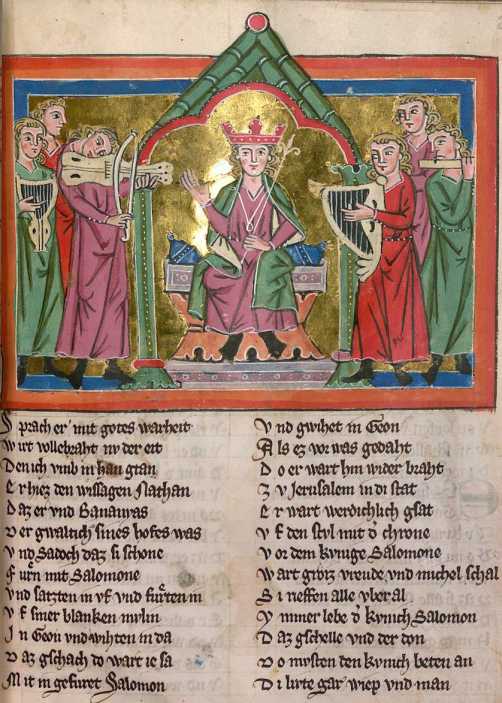 S prach er mit gotes warheit
W irt vollebraht nv der eit
D en ich vmb in han gtan
E r hiez den wissagen Nathan
D az er vnd Banaiwas
D er gwaltich sines hofes was
V nd Sadoch daz si schone
F ůrn mit Salomone
V nd satzten in vf vnd fůrten in
V f siner blanken mvlin
I n Geon vnd wihten in da
D az gschach do wart ie sa
M it in gefuret Salomon
V nd gwihet in Geon
A ls ez vor was gedaht
D o er wart hin wider braht
Z v Jerusalem in di stat
E r wart werdichlich gsat
V f den stvl mit d' chrone
V or dem kvnige Salomone
W art groz vreude vnd michel schal
S i rieffen alle vberal
V mmer lebe d' kvnich Salomon
D az gschelle vnd der don
D o mvsten den kvnich beten an
D i livte gar wiep vnd man